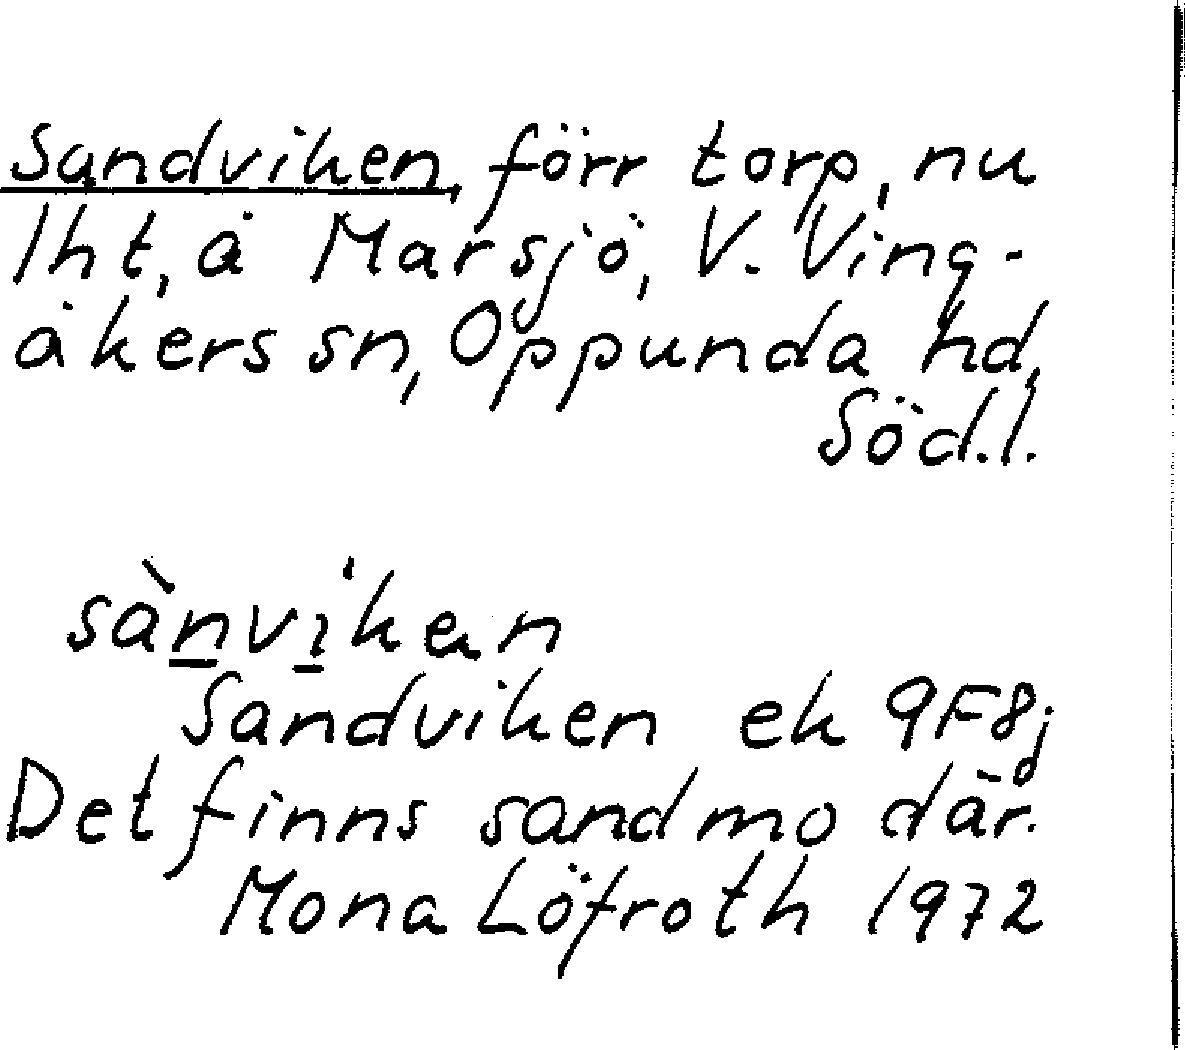 Sandviken, förr torp, nu
lht, å Marsjö, V. Ving-
åkers sn, Oppunda hd,
Söd.l.
sànvi'kɐn
Sandviken ek 9F8j
Det finns sandmo där.
Mona Löfroth 1972